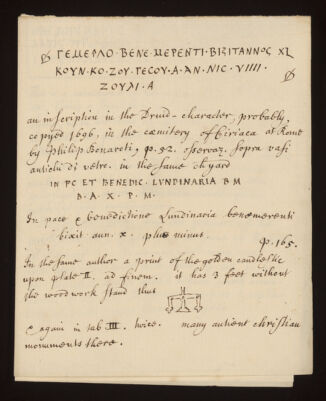 ΓΕΜΕΡΛΟ · ΒΕΝΕ · ΜΕΡΕΝΤΙ · ΒΙΞΙΤΑΝΝΟС ΧL
ΚΟΥΝ · ΚΟ · ΖΟΥ · ΓΕСΟΥ · Α · ΑΝ · ΝΙС · VIIII ·
ΖΟΥΛΙ · Α
an inscription in the Druid-character, probably,
copyed 1696, in the cœmitery of Ciriaca at Rome
by Philip Bonaroti, p. 32. osservaz. sopra vasi
antichi di vetro. in the same chyard
IN PC ET BENEDIC · LUNDINARIA B M
B · A · X · P · M ·
In pace & benedictione Lundinaria benemerenti
bixit ann. x. plus minus.
p. 165.
In the same author a print of the golden candlestic
upon plate II. ad finem. it has 3 feet without
the woodwork stand thus
& again in tab III. twice. many antient christian
monuments there.